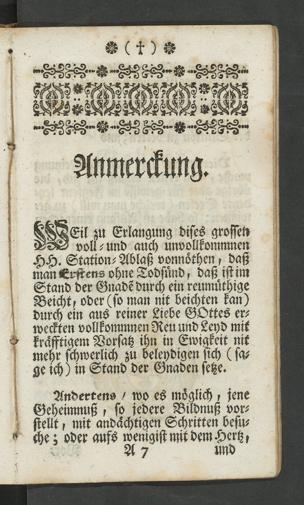 ❉ ( † ) ❉
Anmerckung.
WEil zu Erlangung dises grossen
voll- und auch unvollkommnen
HH. Station-Ablaß vonnöthen, daß
man Erstens ohne Todsünd, daß ist im
Stand der Gnad durch ein reumüthige
Beicht, oder (so man nit beichten kan)
durch ein aus reiner Liebe GOttes er-
weckten vollkommnen Reu und Leyd mit
kräfftigem Vorsatz ihn in Ewigkeit nit
mehr schwerlich zu beleydigen sich (sa-
ge ich) in Stand der Gnaden setze.
Andertens / wo es möglich, jene
Geheimnuß, so jedere Bildnuß vor-
stellt, mit andächtigen Schritten besu-
che; oder aufs wenigist mit dem Hertz,
A 7 und